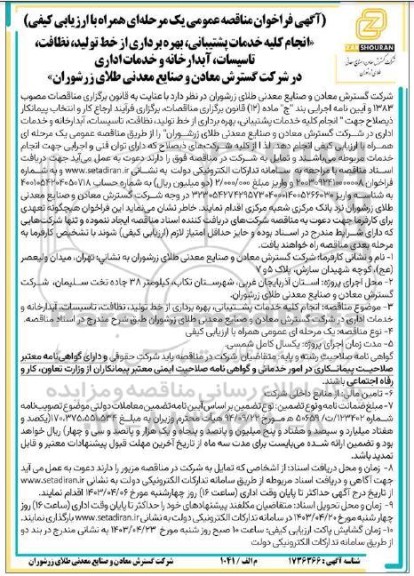 (آگهی فراخوان مناقصه عمومی یک مرحله‌ای همراه با ارزیابی کیفی)
«انجام کلیه خدمات پشتیبانی، بهره برداری از خط تولید، نظافت،
تاسیسات، آبدارخانه و خدمات اداری
در شرکت گسترش معادن و صنایع معدنی طلای زرشوران»
ZAR SHOURAN
شرکت گسترش معادن و صنایع معدنی طلای زرشوران در نظر دارد با عنایت به قانون برگزاری مناقصات مصوب
۱۳۸۳ و آیین نامه اجرایی بند "ج" ماده (۱۲) قانون برگزاری مناقصات، برگزاری فرآیند ارجاع کار و انتخاب پیمانکار
ذیصلاح جهت " انجام کلیه خدمات پشتیبانی، بهره برداری از خط تولید، نظافت، تاسیسات، آبدارخانه و خدمات
اداری در شرکت گسترش معادن و صنایع معدنی طلای زرشوران" را از طریق مناقصه عمومی یک مرحله ای
همراه با ارزیابی کیفی انجام دهد. لذا از کلیه شرکت های ذیصلاح که دارای توان فنی و اجرایی جهت انجام
خدمات مربوطه می‌باشند و تمایل به شرکت در مناقصه فوق را دارند دعوت به عمل می‌آید جهت دریافت
اسناد مناقصه با مراجعه به سامانه تدارکات الکترونیکی دولت به نشانی www.setadiran.ir و به شماره
فراخوان و واریز مبلغ ۲/۰۰۰/۰۰۰ (دو میلیون ریال) به شماره حساب
به شناسه واریز در وجه شرکت گسترش معادن و صنایع معدنی
طلای زرشوران نزد بانک مرکزی شعبه مرکزی اقدام نمایند. خاطر نشان می‌نماید این فراخوان هیچگونه تعهدی
برای کارفرما جهت دعوت به مناقصه شرکت‌های دریافت کننده اسناد مناقصه ایجاد ننموده و تنها شرکت‌هایی
که دارای شرایط مندرج در اسناد بوده و حایز حداقل امتیاز لازم (ارزیابی کیفی) شوند با تشخیص کارفرما به
مرحله بعدی مناقصه راه خواهند یافت.
۱- نام و نشانی کارفرما: شرکت گسترش معادن و صنایع معدنی طلای زرشوران به نشانی: تهران، میدان ولیعصر
(عج)، کوچه شهیدان سازش، پلاک ۵ و ۷
۲- محل اجرای پروژه: استان آذربایجان غربی، شهرستان تکاب، کیلومتر ۳۸ جاده تخت سلیمان، شرکت
گسترش معادن و صنایع معدنی طلای زرشوران.
۳- موضوع مناقصه: انجام کلیه خدمات پشتیبانی، بهره برداری از خط تولید، نظافت، تاسیسات، آبدارخانه و
خدمات اداری در شرکت گسترش معادن و صنایع معدنی طلای زرشوران طبق شرح مندرج در اسناد مناقصه.
۴- نوع مناقصه: یک مرحله ای عمومی همراه با ارزیابی کیفی
۵- مدت زمان اجرای پروژه: یکسال کامل شمسی.
گواهی نامه صلاحیت رشته و پایه: متقاضیان شرکت در مناقصه باید شرکت حقوقی و دارای گواهی نامه معتبر
صلاحیت پیمانکاری در امور خدماتی و گواهی نامه صلاحیت ایمنی معتبر پیمانکاران از وزارت تعاون، کار و
رفاه اجتماعی باشند.
۶- تامین مالی: از منابع داخلی شرکت
۷- مبلغ ضمانت نامه و نوع تضمین: نوع تضمین بر اساس آیین نامه تضمین معاملات دولتی موضوع تصویب نامه
شماره ۱۲۳۴۰۲/ت ۵۰۶۵۹ هـ مورخ ۹۴/۰۹/۲۲ هیات محترم وزیران به مبلغ
هفتاد میلیارد و سیصد و هفتاد و پنج میلیون و پانصد و پنجاه و یک هزار و پانصد و سی و چهار) ریال خواهد
بود و تضمین ارائه شده می‌بایست برای مدت سه ماه از تاریخ آخرین مهلت قبول پیشنهادات معتبر و قابل
تمدید باشد.
۸- زمان و محل دریافت اسناد: از اشخاصی که تمایل به شرکت در مناقصه مزبور را دارند دعوت به عمل می آید
جهت آگاهی و دریافت اسناد مربوطه از طریق سامانه تدارکات الکترونیکی دولت به نشانی www.setadiran.ir
از تاریخ درج آگهی حداکثر تا پایان وقت اداری (ساعت ۱۶) روز چهارشنبه مورخ ۱۴۰۳/۰۴/۰۶ اقدام نمایند.
۹- زمان و محل تحویل اسناد: متقاضیان مکلفند پیشنهادهای خود را حداکثر تا پایان وقت اداری (ساعت ۱۶) روز
چهارشنبه مورخ ۱۴۰۳/۰۴/۲۰ در سامانه تدارکات الکترونیکی دولت به نشانی www.setadiran.ir بارگذاری نمایند.
۱۰- زمان گشایش پاکت ارزیابی کیفی: ساعت ۱۰ صبح روز شنبه مورخ ۱۴۰۳/۰۴/۲۳ به نشانی مندرج در بند دو
از طریق سامانه تدارکات الکترونیکی دولت
شناسه آگهی: ۱۷۳۶۳۶۶ م الف / ۱۰۴۱ شرکت گسترش معادن و صنایع معدنی طلای زرشوران